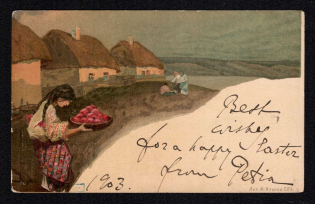 Best
wishes
for a happy Easter
from Petia
1903.